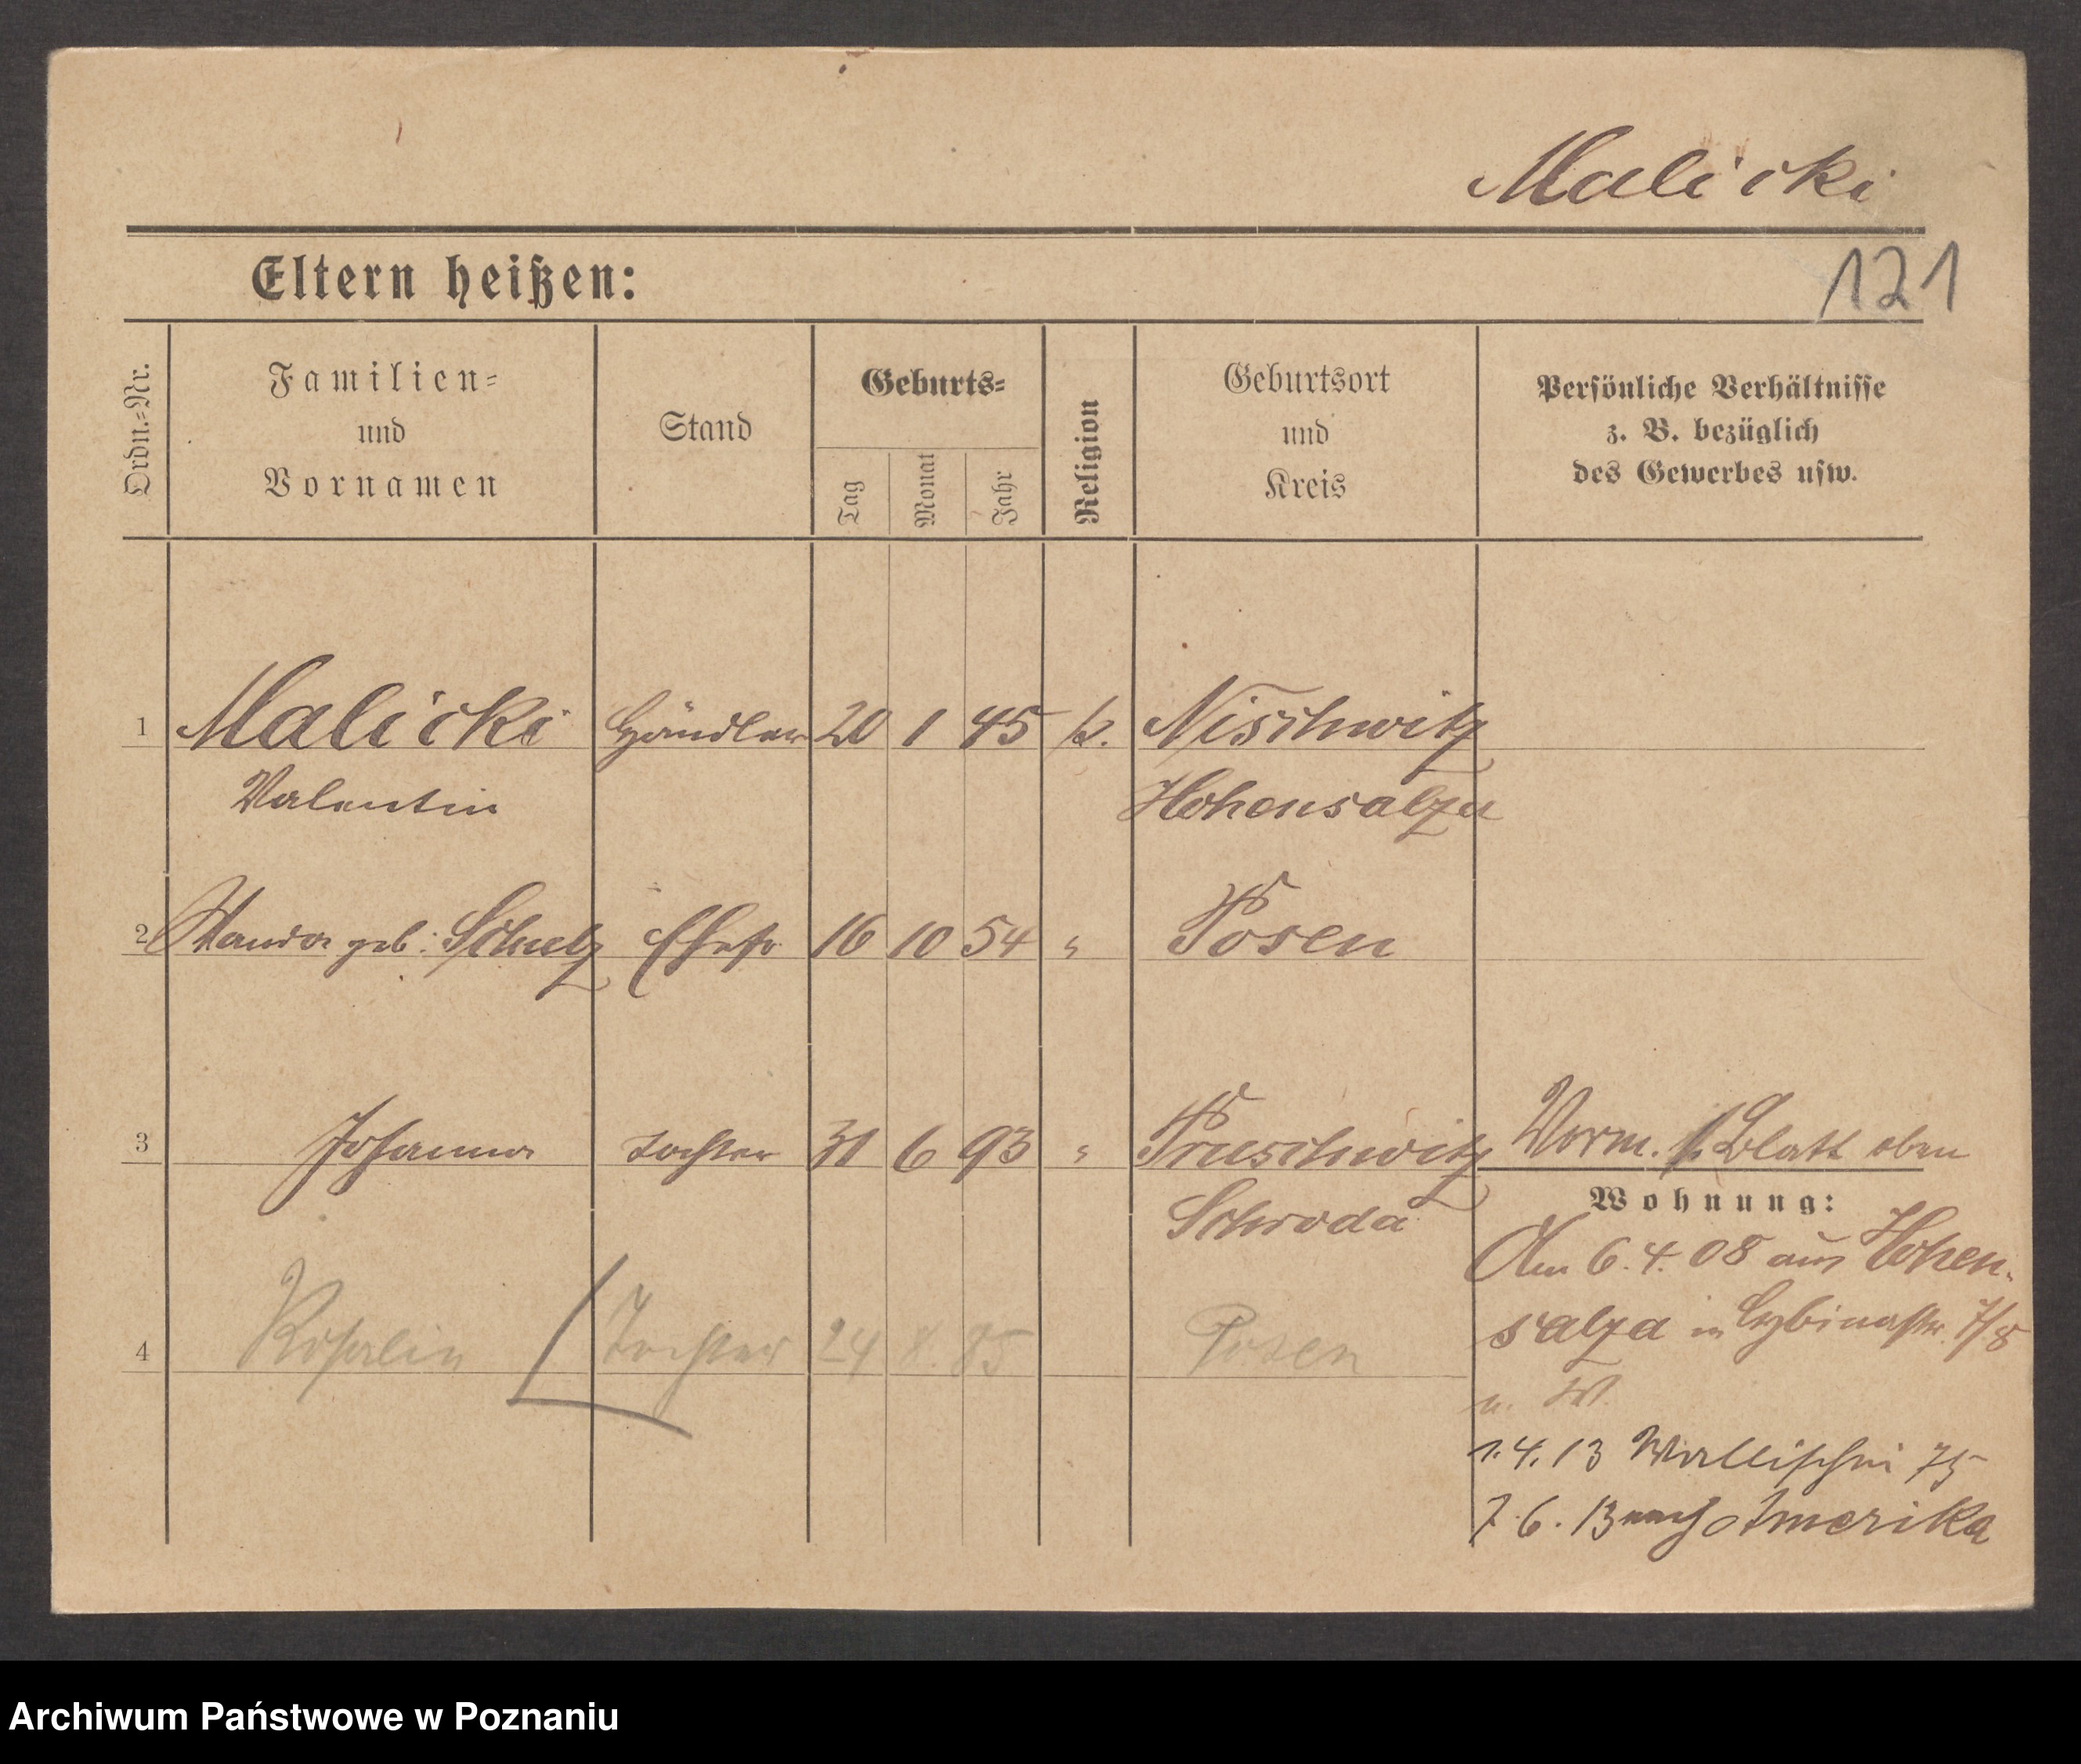 Malicki
Eltern heißen:
121
Ordn.=Nr.
Familien=
und
Vornamen
Stand
Geburts=
Tag
Monat
Jahr
Religion
Geburtsort
und
Kreis
Persönliche Verhältnisse
z. B. bezüglich
des Gewerbes usw.
1 Malicki Händler 20 1 45 k. Nischwitz
Valentin Hohensalza
2 Wanda geb. Schulz Ehefr 16 10 54 " Posen
3 Johanna Tochter 31 6 93 " Pruschwitz Vorm. f. Blatt oben
Schroda
Wohnung:
Am 6.4.08 aus Hohen-
salza in Cybinastr. 7/8
4 Rosalie Tochter 24 8. 85 Posen
u. W.
1.4.13 Wallischei 75
7.6.13 nach Amerika
Archiwum Państwowe w Poznaniu